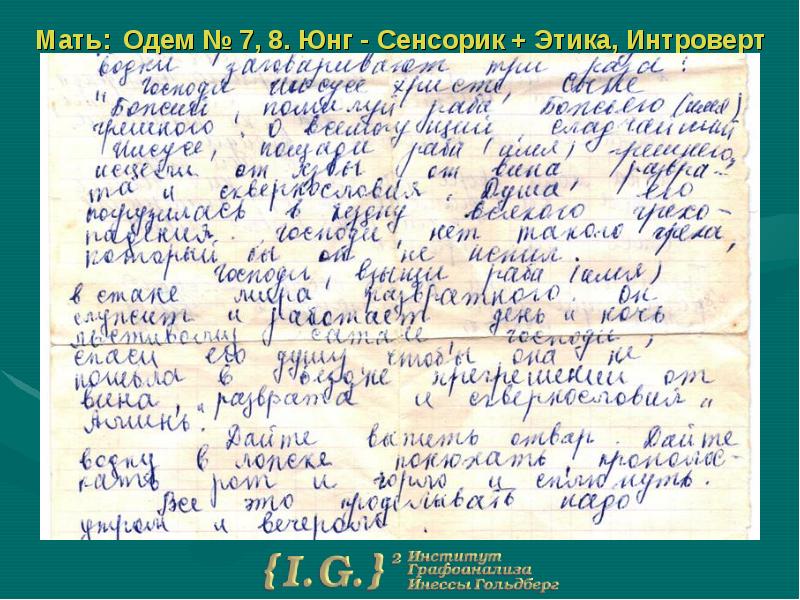 Мать: Одем № 7, 8. Юнг - Сенсорик + Этика, Интроверт
водки заговаривают три раза:
"Господи Иисусе Христе, сыне
Божий, помилуй раба Божьего (имя)
грешного. О всемогущий, сладчайший
Иисусе, пощади раба (имя) грешнего,
исцели от язвы от вина развра-
та и сквернословия. Душа его
погрузилась в бездну всякого грехо-
падения. Господи, нет такого греха,
который бы он не испил.
Господи, взыщи раба (имя)
в стане мира развратного. Он
служит и работает день и ночь
льстивому сатане. Господи,
спаси его душу, чтобы она не
пошла в бездне прегрешений от
вина, разврата и сквернословия"
Аминь."
Дайте выпить отвар. Дайте
водку в ложке понюхать, прополос-
кать рот и горло и сплюнуть.
Все это проделывать надо
утром и вечером.
{I.G.}² Институт
Графоанализа
Инессы Гольдберг